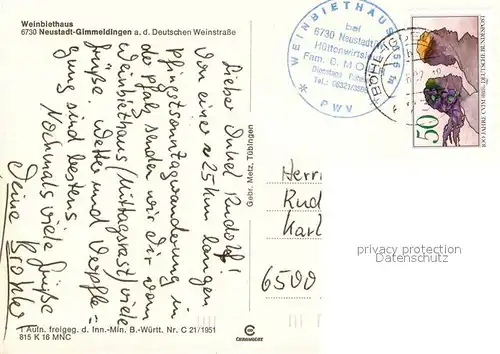 Weinbiethaus
6730 Neustadt-Gimmeldingen a. d. Deutschen Weinstraße
Lieber Onkel Rudolf!
Von einer ≈ 25 km langen
Pfingstsonntagswanderung in
der Pfalz senden wir Dir vom
Weinbiethaus (Mittagsrast) viele
Grüße. Wetter und Verpfle-
gung sind bestens.
Nochmals viele Grüße
Deine
Gebr. Metz, Tübingen
WEINBIETHAUS 554 m
bei
6730 Neustadt
Hüttenwirtsl
Fam. D. MO
Dienstag
Tel.: 06321/
* PWV *
BÖHL-
50
100 JAHRE
DEUTSCHE BUNDESPOST
Herrn
Rud
Karl
6500
privacy protection
1 Aufn. freigeg. d. Inn.-Min. B.-Württ. Nr. C 21/1951
815 K 16 MNC